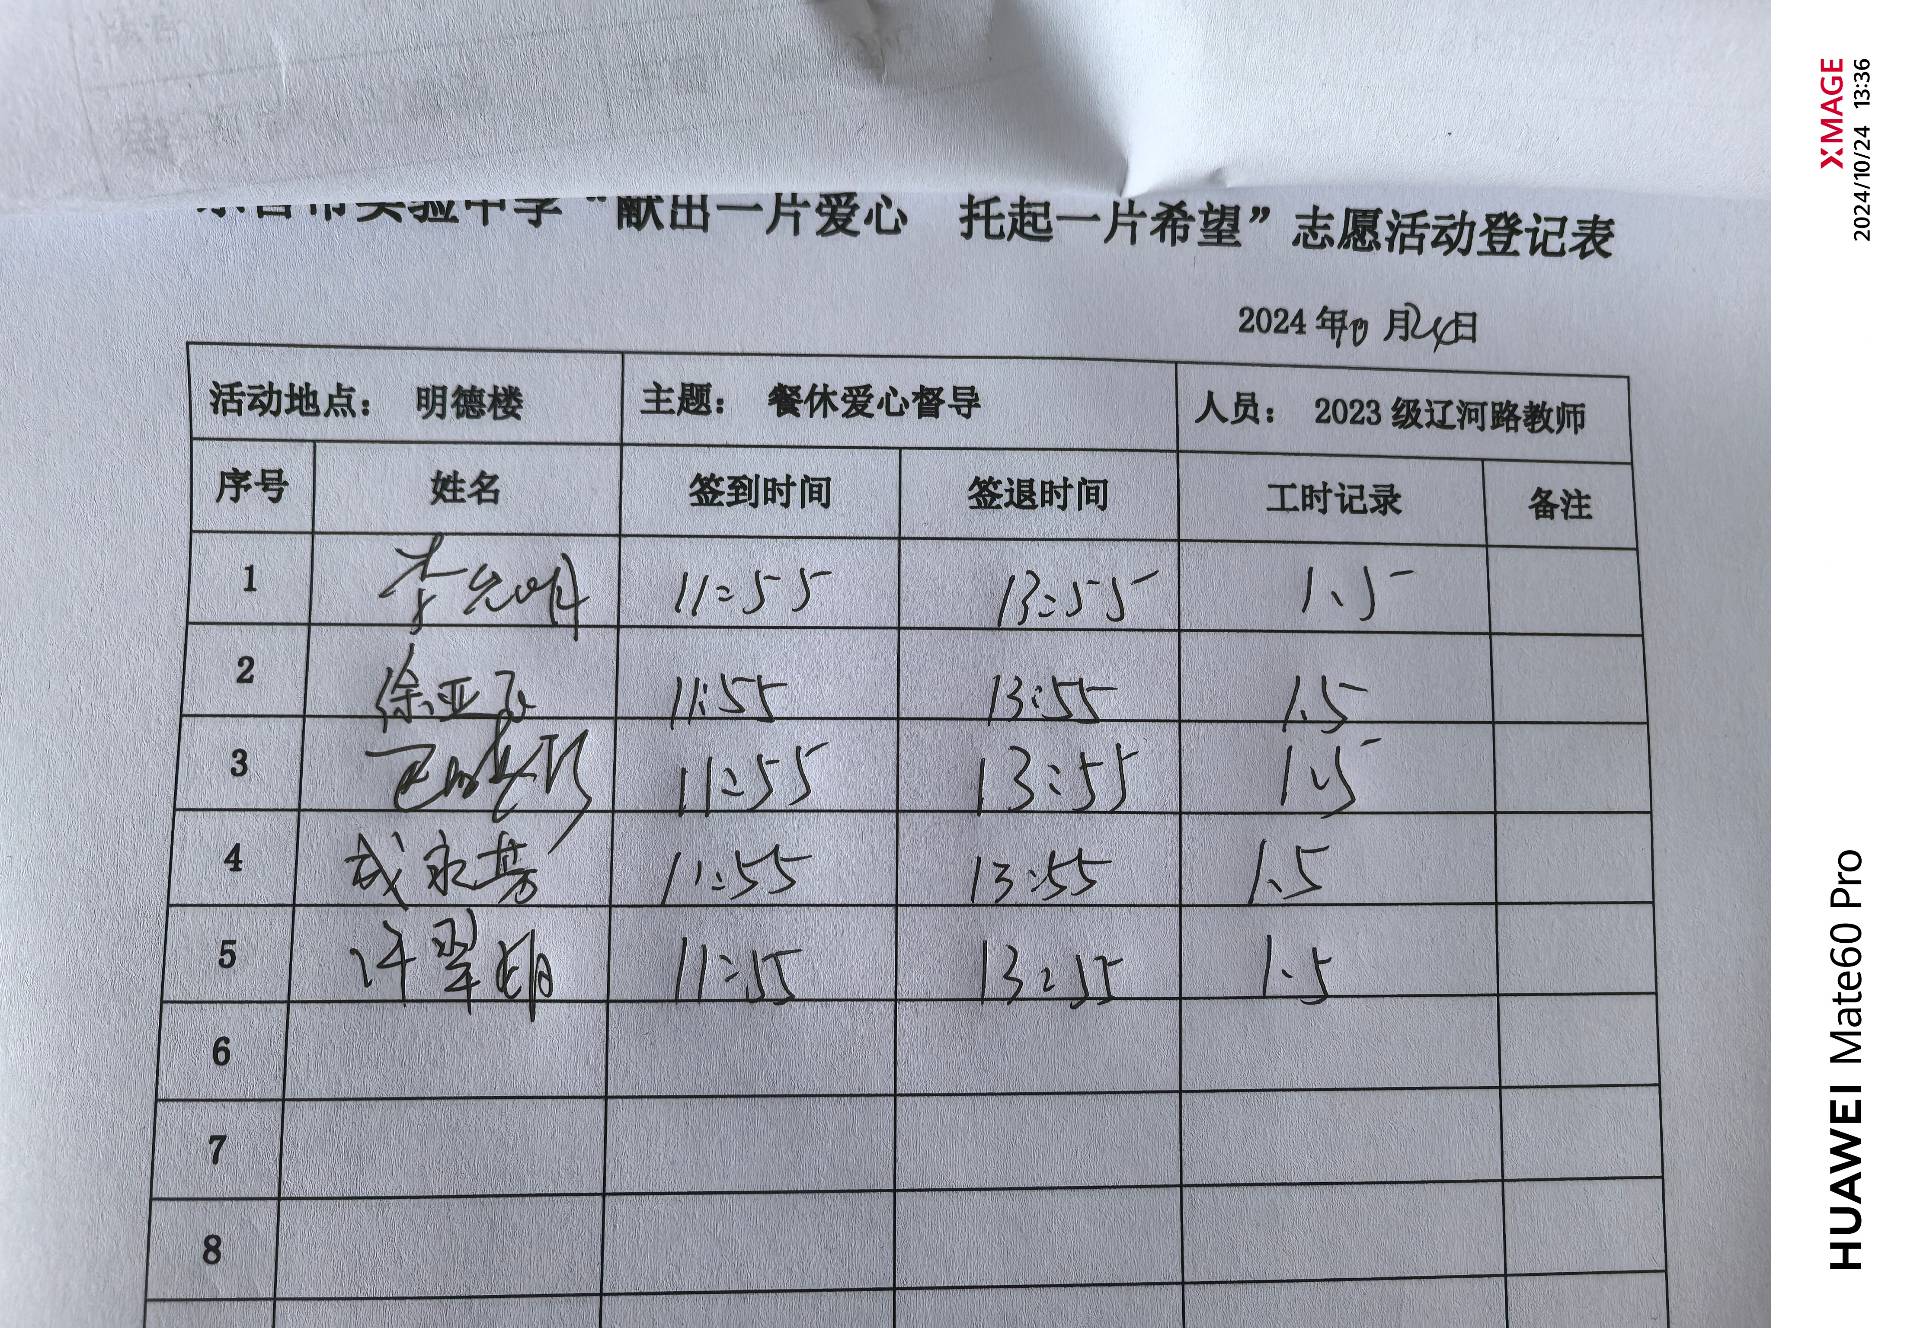 实验中学“献出一片爱心 托起一片希望”志愿活动登记表
2024年10月24日
活动地点： 明德楼 主题： 餐休爱心督导 人员： 2023级辽河路教师
序号 姓名 签到时间 签退时间 工时记录 备注
1 11:55 13:55 1.5
2 徐亚 11:55 13:55 1.5
3 11:55 13:55 1.5
4 武永芳 11:55 13:55 1.5
5 许翠娟 11:55 13:55 1.5
6
7
8
XMAGE
2024/10/24 13:36
HUAWEI Mate60 Pro